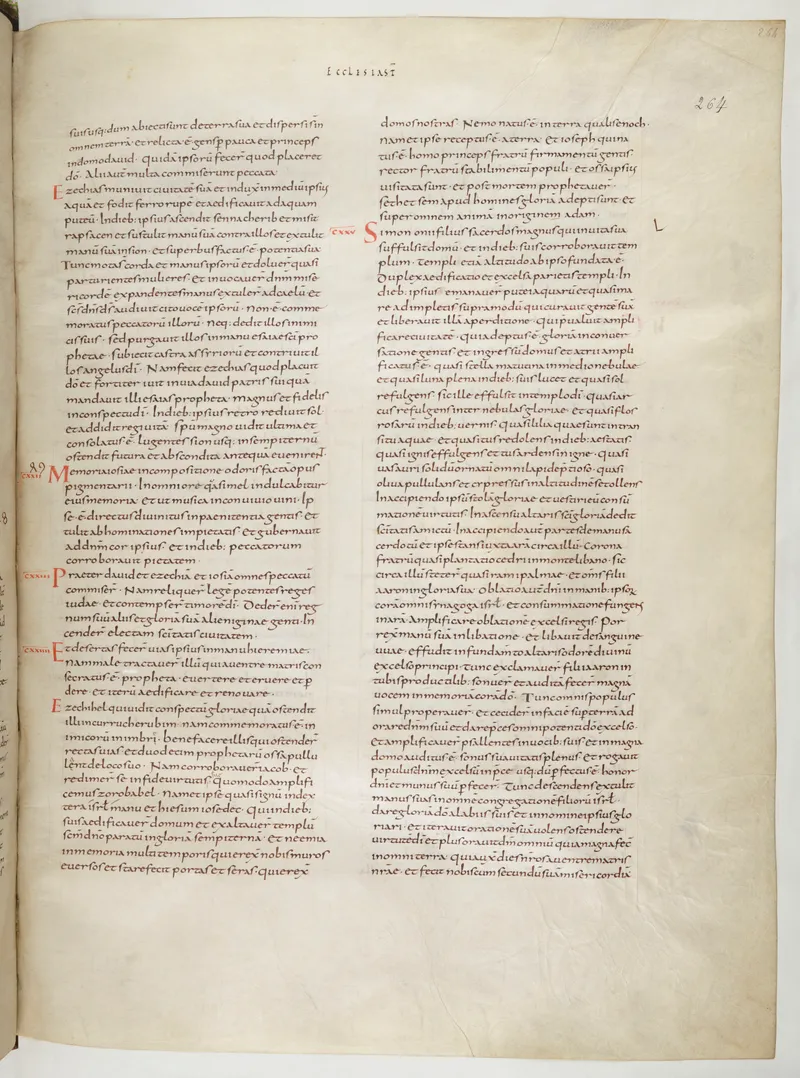 ECCLESIAST̄
264
suis usq; dum abiecti sunt de terra sua et dispersi sin
omnem terrā et relicta ē gens p̱ pauca et princeps
in domo dauid · quidā ipsorū fecer̄ quod placeret
dō · Alii aut̄ multa commiserunt peccata·
Ezechias muniuit ciuitatē suā et induxit in mediū ipsius
aquā et fodit ferro rupē et aedificauit ad aquam
puteū · In dieb; ipsius ascendit sennacherib et misit
rapsacen et sustulit manū suā contra illos et extulit
manū suā in sion · et superbus factus ē potentia sua·
Tunc mota s̄ corda et manus ipsorū et doluer̄ quasi
parturientes mulieres · et inuocauer̄ dn̄m mise
ricordē expandentes manus extuler̄ ad caelū et
sc̄s dn̄s ds̄ audiuit cito uocē ipsorū · Non ē comme
moratus peccatorū illorū · neq; dedit illos inimi
cis suis · sed purgauit illos in manu esaiae sc̄i pro
phetae · subiecit castra assyriorū et contriuit il
los angelus dī · Nam fecit ezechias quod placuit
dō et fortiter iuit in uia dauid patris sui quā
mandauit illi esaias propheta magnus et fidelis
in conspectu dī · In dieb; ipsius retro rediuit sol·
et addidit regi uitā · sp̄u magno uidit ultima et
consolatus ē lugentes sion usq; in sempiternū
ostendit futura et abscondita antequā euenirent·
CXXII Memoria iosiae in compositione odoris facta opus
pigmentarii · In omni ore quasi mel indulcabitur
eius memoria · et ut musica in conuiuio uini · Ip
se ē directus diuinitus in paenitentia gentis et
tulit abhominationes impietatis et gubernauit
ad dn̄m cor ipsius et in dieb; peccatorum
corroborauit pietatem·
CXXIII Praeter dauid et ezechiā et iosiā omnes peccatū
commiser̄ · Nam reliquer̄ legē potentes reges
iudae · et contempser̄ timorē dī · Deder̄ eni reg
num suū aliis et gloriā suā alieniginae genti · In
cender̄ electam sc̄itatis ciuitatem·
CXXIIII Et desertas fecer̄ uias ipsius in manu hieremiae·
Nam male tractauer̄ illū qui a uentre matris con
secratus ē propheta · euertere et eruere et p̱
dere · et iterū aedificare et renouare·
Ezechihel qui uidit conspectū gloriae quā ostendit
illi in curru cherubim · nam commemoratus ē in
imicorū in imbri · benefacere illis qui ostender̄
recta s uias et duodecim prophetarū ossa pullu
lent de loco suo · Nam corroborauer̄ iacob · et
redimer̄ se in fide uirtutis · quomodo amplifi
cemus zorobabel · Nam et ipse quasi signū in dex
tera isrl manu et hiesum iosedec · qui in dieb;
suis aedificauer̄ domum et exaltauer̄ templū
sc̄m dn̄o paratū in gloriā sempiternā · et neemia
in memoria multi temporis qui erex̄ nobis muros
euersos et stare fecit portas et seras · qui erex̄
domos nostras · Nemo natus ē in terra qualis enoch·
nam et ipse receptus ē a terra · et ioseph qui na
tus ē homo princeps fratrū firmamentū gentis
rector fratrū stabilimentū populi · et ossa ipsius
uisitata sunt · et post mortem prophetauer̄·
seth et sem apud homines gloriā adepti sunt · et
super omnem animā in origine adam·
CXXV Simon onii filius sacerdos magnus qui in uita sua
suffulsit domū · et in dieb; suis corroborauit tem
plum · Templi etiā altitudo ab ipso fundata ē·
Duplex aedificatio et excelsi parietes templi · In
dieb; ipsius emanauer̄ putei aquarū et quasi ma
re adimpleti s̄ supra modū qui curauit gentē suā
et liberauit illā a perditione · qui praeualuit ampli
ficare ciuitatē · qui adeptus ē gloriā in conuer
satione gentis · et ingressū domus et atrii ampli
ficatus ē · quasi stella matutina in medio nebulae·
et quasi luna plena in dieb; suis lucet et quasi sol
refulgens · sic ille effulsit in templo dī · quasi ar
cus refulgens inter nebulas gloriae · et quasi flos
rosarū in dieb; uernis · quasi lilia quae sunt in tran
situ aquae · et quasi tus redolens in dieb; aestatis·
quasi ignis effulgens et tus ardens in igne · quasi
uas auri solidū ornatū omni lapide p̄tioso · quasi
oliua pullulans et cypressus in altitudinē se tollens·
In accipiendo ipsū stolā gloriae et uestiri eū consū
matione uirtutis · In ascensu altaris sc̄i gloriā dedit
sc̄itatis amictū · In accipiendo aut̄ partes de manu sa
cerdotū et ipse stans iuxta arā circa illū · Corona
fratrū quasi plantatio cedri in monte libano · sic
circa illū steter̄ quasi rami palmae · et om̄s filii
aaron in gloria sua · Oblatio aut̄ dn̄i in manib; ipsoȝ
corā omni synagoga isrl · et consummatione fungens
in ara · Amplificare oblationē excelsi regis · Por
rex̄ manū suā in libatione · et libauit de sanguine
uuae · effudit in fundam̄to altaris odorē diuinū
excelso principi · Tunc exclamauer̄ filii aaron in
tubis productilib; sonuer̄ et auditā fecer̄ magnā
uocem in memoria corā dō · Tunc omnis populus
simul properauer̄ · et cecider̄ in faciē sup̱ terrā ad
orare dn̄m suū et dare p̄ces omnipotenti dō excelso·
et amplificauer̄ psallentes in uocib; suis · et in magna
domo auctus ē sonus suauitatis plenus · et rogauit
populus dn̄m excelsū in p̄ce · usq; dū p̱fectus ē honor
dn̄i et munus suū p̱fecer̄ · Tunc descendens extulit
manus suas in omne congregationē filiorū isrl
dare gloriā dō a labiis suis · et in nomine ipsius glo
riari · et iterauit orationē suā uolens ostendere
uirtutē dī · et plus orauit dn̄m omniū qui magna fec̄
in omni terra · qui aux̄ dies nr̄os a uentre matris
nr̄ae · et fecit nobiscum secundū suā misericordiā